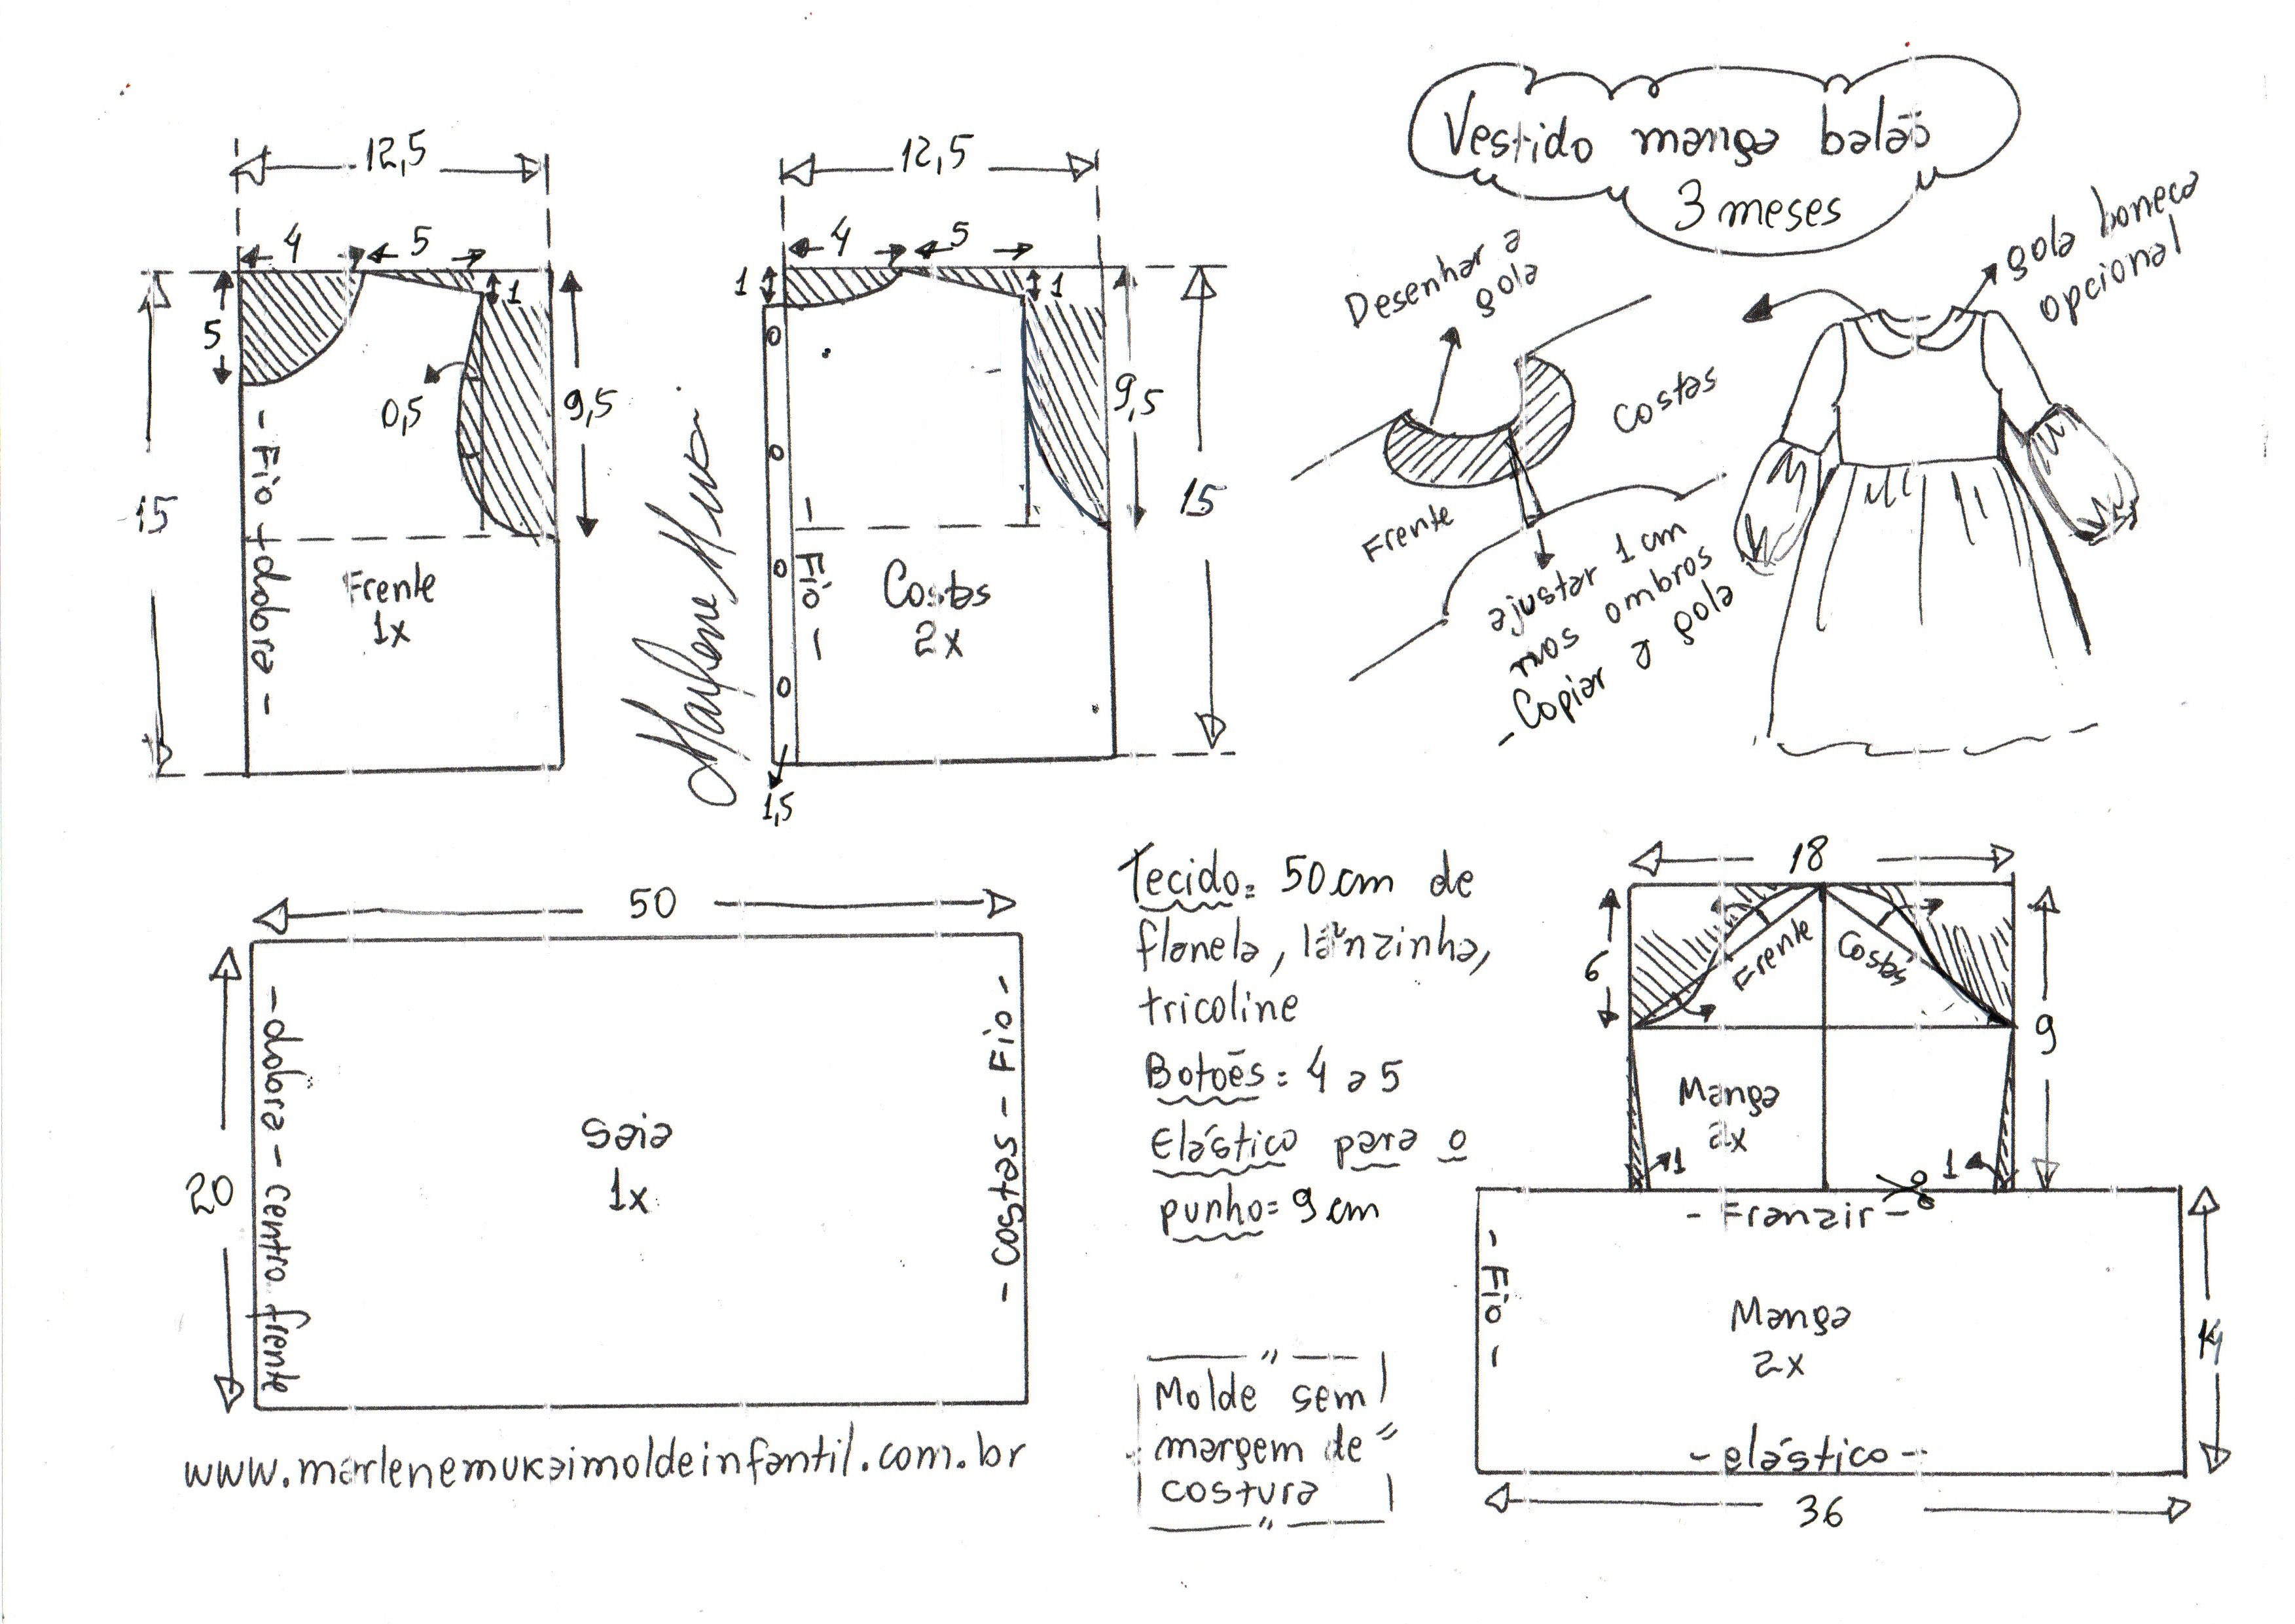 Vestido manga balão
3 meses
12,5
4
5
5
1
0,5
9,5
15
- Fio + dobra -
Frente
1x
12,5
4
5
1
1
9,5
15
- Fio -
Costas
2x
1,5
Desenhar a
gola
gola boneca
opcional
Costas
Frente
ajustar 1 cm
nos ombros
- Copiar a gola
50
20
- dobra - centro frente
Saia
1x
- costas - Fio -
www.marlenemukaimoldeinfantil.com.br
Tecido = 50 cm de
flanela, lãnzinha,
tricoline
Botões = 4 a 5
Elástico para o
punho = 9 cm
Molde sem
margem de
costura
18
6
9
Frente
Costas
Manga
2x
1
1
- Franzir -
- Fio -
Manga
2x
14
- elástico -
36